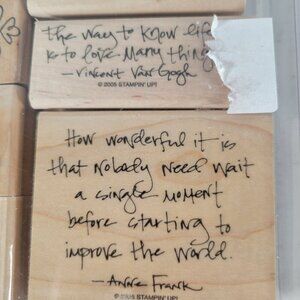 the way to know life
is to love many thing
— Vincent Van Gogh
© 2005 STAMPIN' UP!
How wonderful it is
that nobody need wait
a single moment
before starting to
improve the world.
— Anne Frank
STAMPIN' UP!